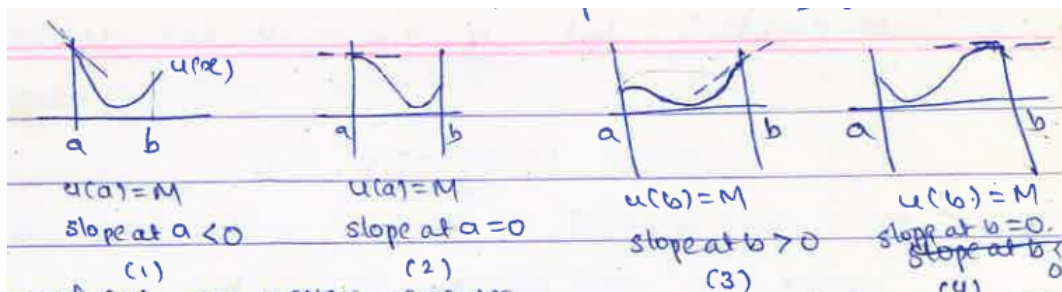 u(x)
a b
a b
a b
a b
u(a)=M
slope at a <0
(1)
u(a)=M
slope at a =0
(2)
u(b)=M
slope at b >0
(3)
u(b)=M
slope at b =0.
slope at b <
0
(4)